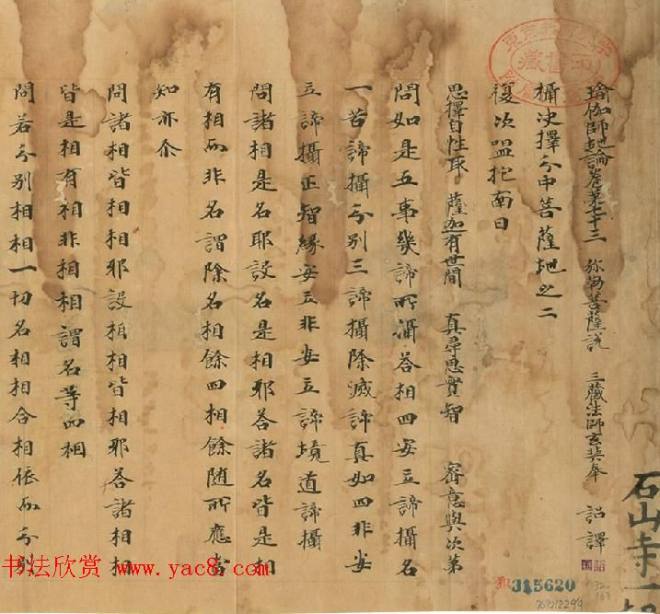 瑜伽師地論卷第七十三 弥勒菩薩説 三藏法師玄奘奉 詔譯
攝決擇分中菩薩地之二
復次嗢拕南曰
思擇自性取 薩迦有世間 真尋思實智 密意與次第
問如是五事幾諦所攝答相四安立諦攝名
一苦諦攝分別三諦攝除滅諦真如四非安
立諦攝正智緣安立非安立諦境道諦攝
問諸相是名耶設名是相耶答諸名皆是相
有相而非名謂除名相餘四相餘隨所應當
知亦尒
問諸相皆相相耶設相相皆相耶答諸相相
皆是相有相非相相謂名等四相
問若分別相相一切名相相合相依而分別
石山寺一
书法欣赏 www.yac8.com
315620